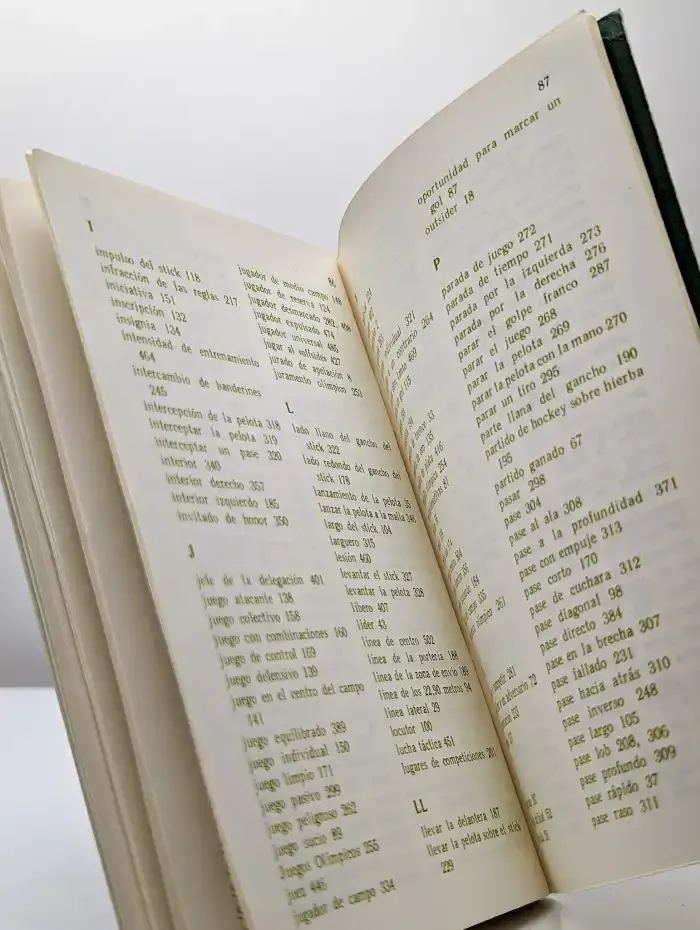 I
impulso del stick 118
infracción de las reglas 217
iniciativa 151
inscripción 132
insignia 134
intensidad de entrenamiento
464
intercambio de banderines
245
intercepción de la pelota 318
interceptar la pelota 319
interceptar un pase 320
interior 340
interior derecho 357
interior izquierdo 185
invitado de honor 350
J
jefe de la delegación 401
juego atacante 138
juego colectivo 158
juego con combinaciones 160
juego de control 159
juego defensivo 139
juego en el centro del campo
141
juego equilibrado 389
juego individual 150
juego limpio 171
juego pasivo 299
juego peligroso 262
juego sucio 89
Juegos Olímpicos 255
juez 445
jugador de campo 334
86
jugador de medio campo 148
jugador de reserva 124
jugador desmarcado 282,
jugador expulsado 474
jugador universal 485
jugar al
jurado de apelación
juramento olímpico 253
L
lado llano del gancho del
stick 322
lado redondo del gancho del
stick 178
lanzamiento de la pelota 35
lanzar la pelota a la malla 346
largo del stick 104
larguero 315
lesión 460
levantar el stick 327
levantar la pelota 328
líbero 407
líder 43
línea de centro 502
línea de la portería 188
línea de la zona de envío 189
línea de los 22,90 metros 94
línea lateral 29
locutor 100
lucha táctica 451
lugares de competiciones 201
LL
llevar la delantera 187
llevar la pelota sobre el stick
229
87
oportunidad para marcar un
gol 87
outsider 18
P
parada de juego 272
parada de tiempo 271
parada por la izquierda 273
parada por la derecha 276
parar el golpe franco 287
parar el juego 268
parar la pelota 269
parar la pelota con la mano 270
parar un tiro 295
parte llana del gancho 190
partido de hockey sobre hierba
195
partido ganado 67
pasar 298
pase 304
pase al ala 308
pase a la profundidad 371
pase con empuje 313
pase corto 170
pase de cuchara 312
pase diagonal 98
pase directo 384
pase en la brecha 307
pase fallado 231
pase hacia atrás 310
pase inverso 248
pase largo 105
pase lob 208, 306
pase profundo 309
pase rápido 37
pase raso 311